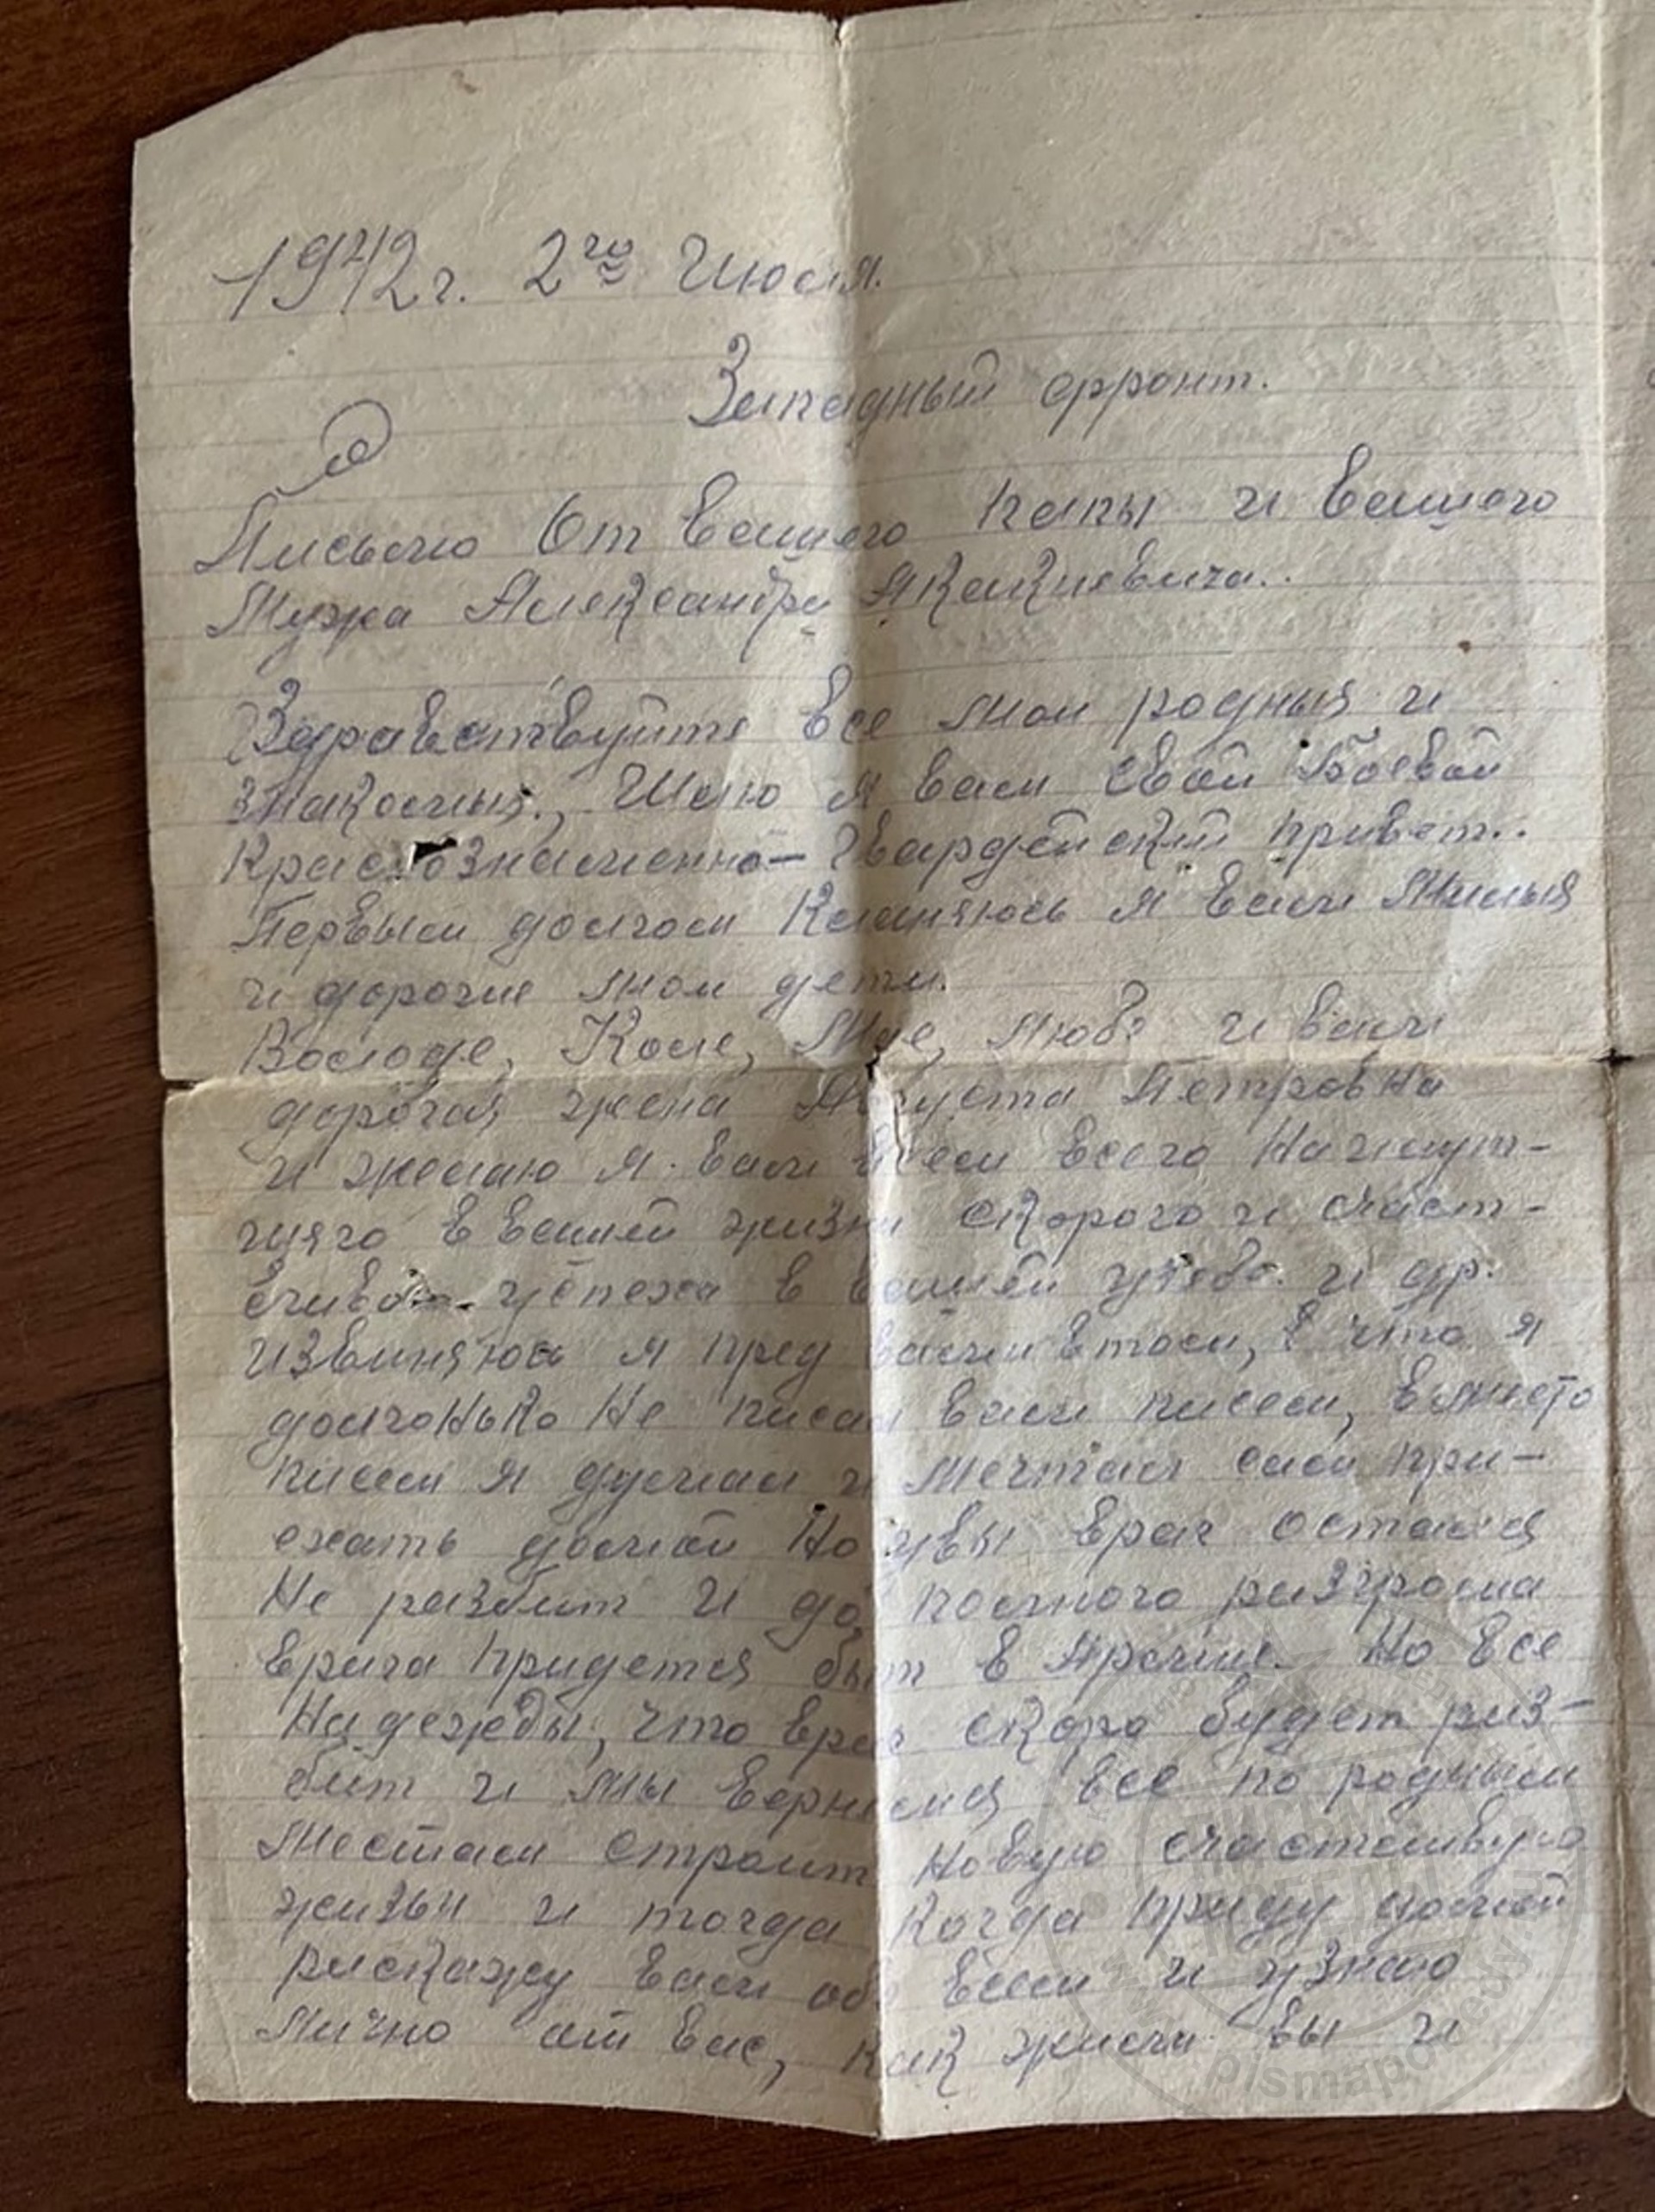 1942 г. 2го Июля.
Западный фронт.
Письмо От вашего папы и вашего
Мужа Александра Акакиевича..
Здравствуйте все мои родныя и
знакомыя., Шлю я вам свой Боевой
Краснознаменно-Гвардейский привет..
Первым долгом Кланяюсь я вам Милыя
и дорогие мои дети.
Володе, Коле, Люб? и вам
дорогая жена Августа Петровна
и желаю я вам всем всего Наилут-
чяго в вашей жизни скорого и счаст-
ливо успеха в вашей учебе. и др.
извиняюсь я пред вами втом, что я
долгонько Не писал вам писем, вместо
писем я думал и Мечтал сам при-
ехать домой Но увы враг остался
Не разбит и до полного разгрома
врага придется быт в Армие. Но все
Надежды, что враг скоро будет раз-
бит и мы вернемся все по родным
Местам строит Новую счастливую
жизьн и тогда Когда приду домой
раскажу вам обо всем и узнаю
Лично от вас, как жили вы и
pismapobedy.